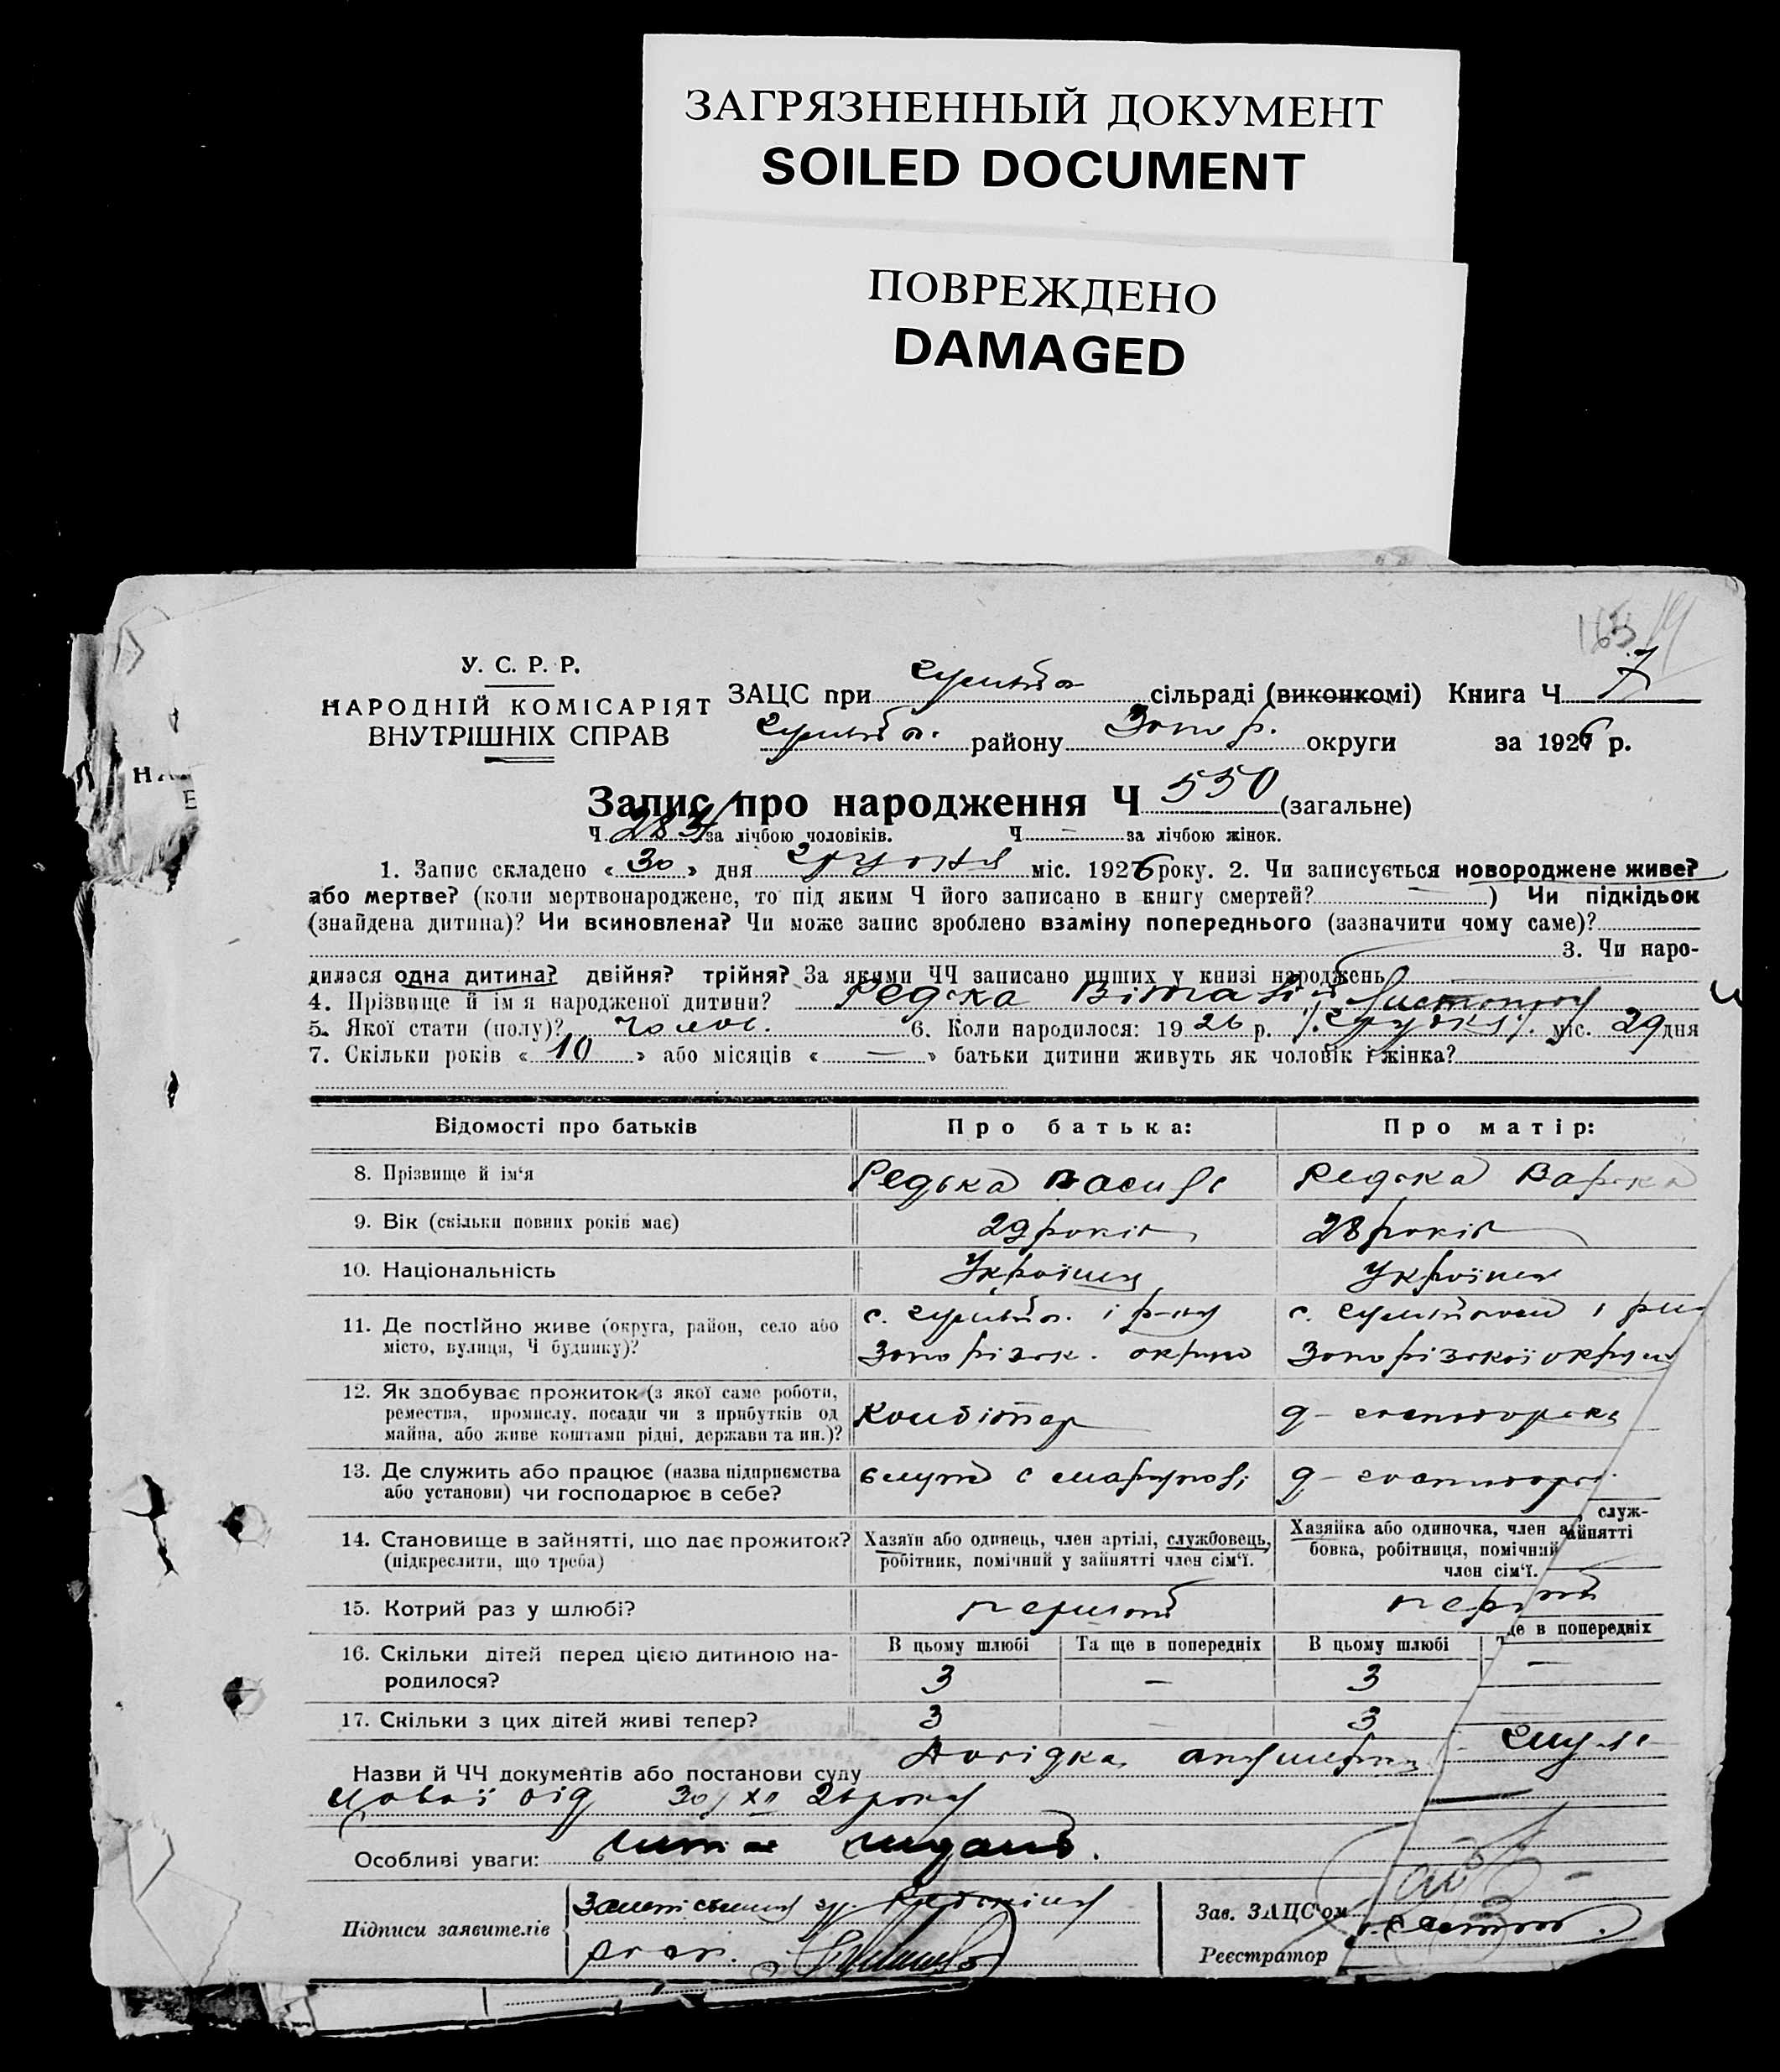 ЗАГРЯЗНЕННЫЙ ДОКУМЕНТ
SOILED DOCUMENT
ПОВРЕЖДЕНО
DAMAGED
У. С. Р. Р.
НАРОДНІЙ КОМІСАРІЯТ
ВНУТРІШНІХ СПРАВ
ЗАЦС при сільраді (виконкомі) Книга Ч 7
району Запор. округи за 1926 р.
Запис про народження Ч 550 (загальне)
Ч 283 за лічбою чоловіків. Ч — за лічбою жінок.
1. Запис складено « 30 » дня грудня міс. 1926 року. 2. Чи записується новороджене живе?
або мертве? (коли мертвонароджене, то під яким Ч його записано в книгу смертей? — ) Чи підкідьок
(знайдена дитина)? Чи всиновлена? Чи може запис зроблено взаміну попереднього (зазначити чому саме)?
3. Чи наро-
дилася одна дитина? двійня? трійня? За якими ЧЧ записано инших у книзі народжень
4. Прізвище й ім'я народженої дитини? Редька Віталій
5. Якої стати (полу)? чолов. 6. Коли народилося: 1926 р. Листопад міс. 29 дня
7. Скільки років « 10 » або місяців « — » батьки дитини живуть як чоловік і жінка?
Відомості про батьків Про батька: Про матір:
8. Прізвище й ім'я Редька Василь Редька Варька
9. Вік (скільки повних років має) 29 років 28 років
10. Національність Українец Українка
11. Де постійно живе (округа, район, село або
місто, вулиця, Ч будинку)? Запорізьк. округи Запорізької округи
12. Як здобуває прожиток (з якої саме роботи,
ремества, промислу, посади чи з прибутків од
майна, або живе коштами рідні, держави та ин.)? Кондітер
13. Де служить або працює (назва підприємства
або установи) чи господарює в себе?
14. Становище в зайнятті, що дає прожиток?
(підкреслити, що треба)
Хазяїн або одинець, член артілі, службовець,
робітник, помічний у зайнятті член сім'ї.
Хазяйка або одиночка, член служ-
бовка, робітниця, помічний зайнятті
член сім'ї.
15. Котрий раз у шлюбі? перший перший
16. Скільки дітей перед цією дитиною на-
родилося?
В цьому шлюбі Та ще в попередніх В цьому шлюбі ще в попередніх
3 — 3 —
17. Скільки з цих дітей живі тепер? 3 — 3
Назви й ЧЧ документів або постанови суду Довідка
від 30/XII 26 року
Особливі уваги:
Підписи заявителів
Зав. ЗАЦС'ом
Реєстратор